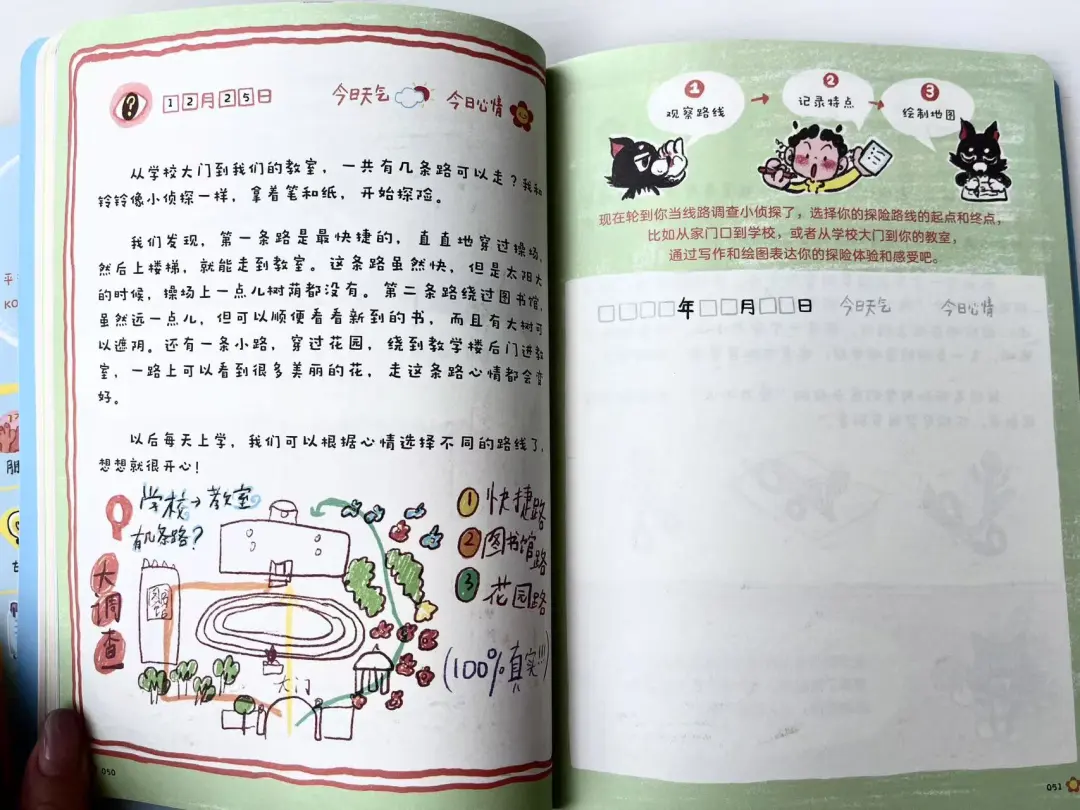 12月25日 今日天气 今日心情
从学校大门到我们的教室,一共有几条路可以走?我和
铃铃像小侦探一样,拿着笔和纸,开始探险。
我们发现,第一条路是最快捷的,直直地穿过操场,
然后上楼梯,就能走到教室。这条路虽然快,但是太阳大
的时候,操场上一点儿树荫都没有。第二条路绕过图书馆,
虽然远一点儿,但可以顺便看看新到的书,而且有大树可
以遮阴。还有一条小路,穿过花园,绕到教学楼后门进教
室,一路上可以看到很多美丽的花,走这条路心情都会变
好。
以后每天上学,我们可以根据心情选择不同的路线了,
想想就很开心!
学校→教室
有几条路?
大调查
图书馆
大门
1 快捷路
2 图书馆路
3 花园路
(100%真实!!!)
050
1 观察路线
2 记录特点
3 绘制地图
现在轮到你当线路调查小侦探了,选择你的探险路线的起点和终点,
比如从家门口到学校,或者从学校大门到你的教室,
通过写作和绘图表达你的探险体验和感受吧。
□□□□年□□月□□日 今日天气 今日心情
051